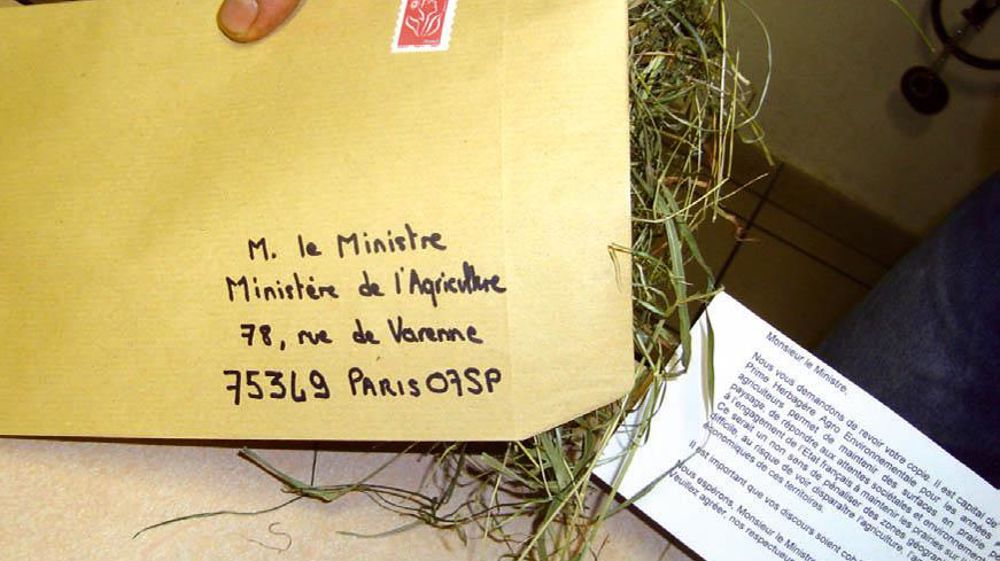 M. le Ministre
Ministère de l'Agriculture
78, rue de Varenne
75349 PARIS 07SP
Monsieur le Ministre,
Nous vous demandons de revoir votre copie. Il est capital de
Prime Herbagère Agro Environnementale pour les années
agriculteurs permet de maintenir des surfaces en prairie
paysage, de répondre aux attentes sociétales et environnement
à l'engagement de l'Etat français à maintenir les prairies sur l
Ce serait un non sens de pénaliser des zones géogra
difficile, au risque de voir disparaître l'agriculture, l'a
économiques de ces territoires.
Il est important que vos discours soient coh
Nous espérons, Monsieur le Minist
Veuillez agréer, nos respectueu